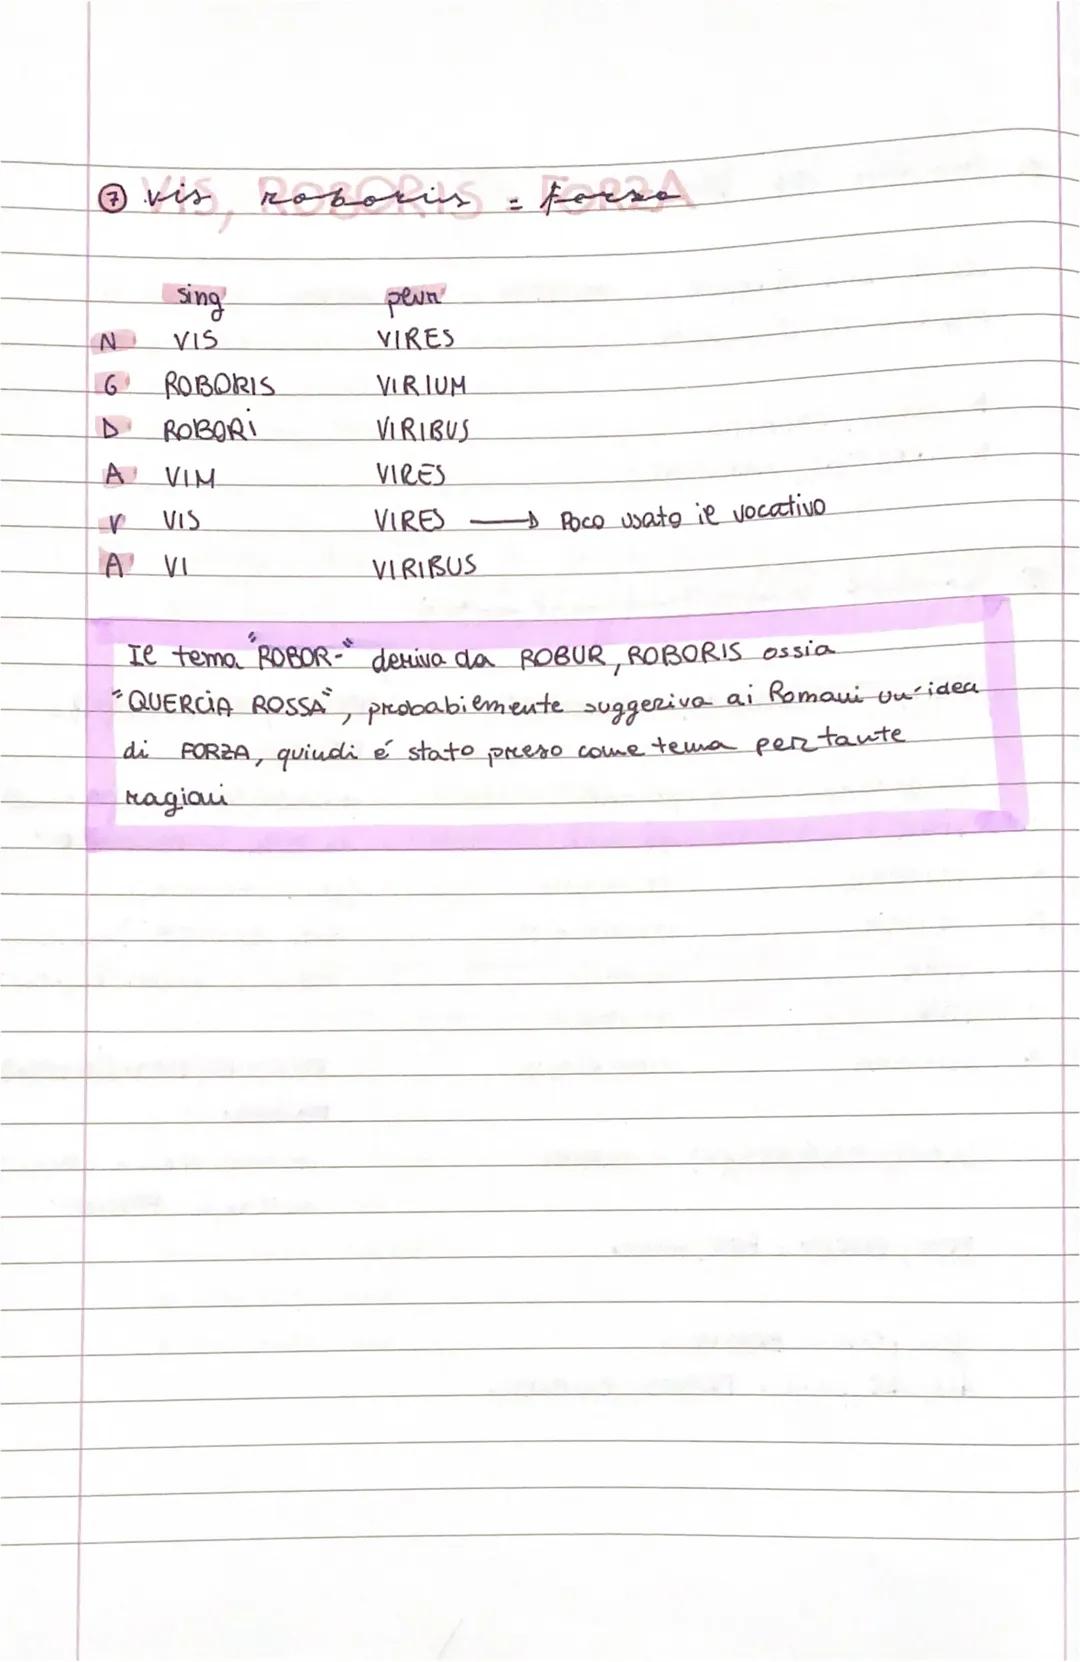 ⑦ vis, roboris = forza
VIS, ROBORIS FORZA
sing plur
N VIS VIRES
G ROBORIS VIRIUM
D ROBORI VIRIBUS
A VIM VIRES
V VIS VIRES → Poco usato il vocativo
A VI VIRIBUS
Il tema "ROBOR-" deriva da ROBUR, ROBORIS ossia
"QUERCIA ROSSA", probabilmente suggeriva ai Romani un'idea
di FORZA, quindi é stato preso come tema per tante
ragioni